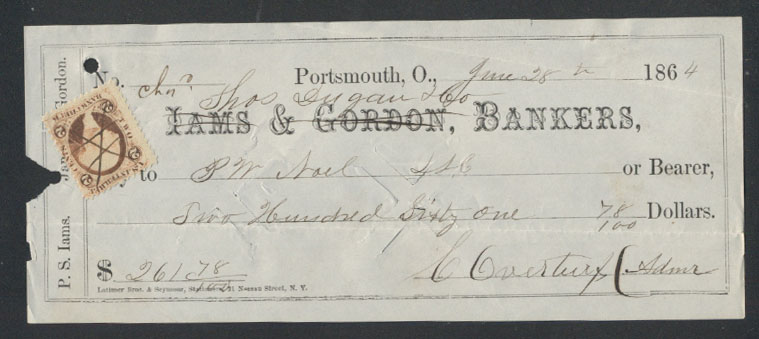 No. Portsmouth, O., June 28th 1864
Thos Dugan & Co
IAMS & GORDON, BANKERS,
to P W Noel or Bearer,
Two Hundred Sixty One 78/100 Dollars.
$ 261 78/100 C Overturf Admr
Latimer Bros. & Seymour, 21 Nassau Street, N. Y.
P. S. Iams. Jas. Gordon.